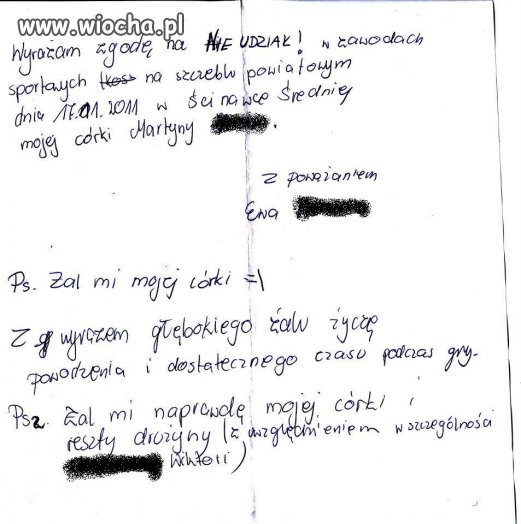 www.wiocha.pl
Wyrażam zgodę na NIE UDZIAŁ! w zawodach
sportowych na szczeblu powiatowym
dnia 17.01.2011 w Ścinawce Średniej
mojej córki Martyny .
Z poważaniem
Ewa
Ps. Żal mi mojej córki =\
Z wyrazem głębokiego żalu życzę
powodzenia i dostatecznego czasu podczas gry.
Ps2. Żal mi naprawdę mojej córki i
reszty drużyny (z uwzględnieniem w szczególności
Wiktorii)